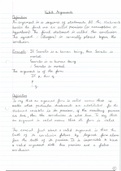 Valid Arguments
Definition
An argument is a sequence of statements. All the statements
besides the final one are called premises (or assumptions or
hypotheses). The final statement is called the conclusion.
The symbol ∴ (therefore) is normally placed before the
conclusion.
Example: If Socrates is a human being, then Socrates is
mortal.
Socrates is a human being
∴ Socrates is mortal.
The argument is of the form
If p then q
p
∴ q
Definition
To say that an argument form is valid means that no
matter what particular statements are substituted for the
statement variables in its premises, if the resulting premises
are true, then the conclusion is also true. To say that
an argument is valid means that its form is valid.
The crucial fact about a valid argument is that the
truth of its conclusion follows
from the truth of its premises. It is impossible to have
a valid argument with true premises and a false
conclusion.